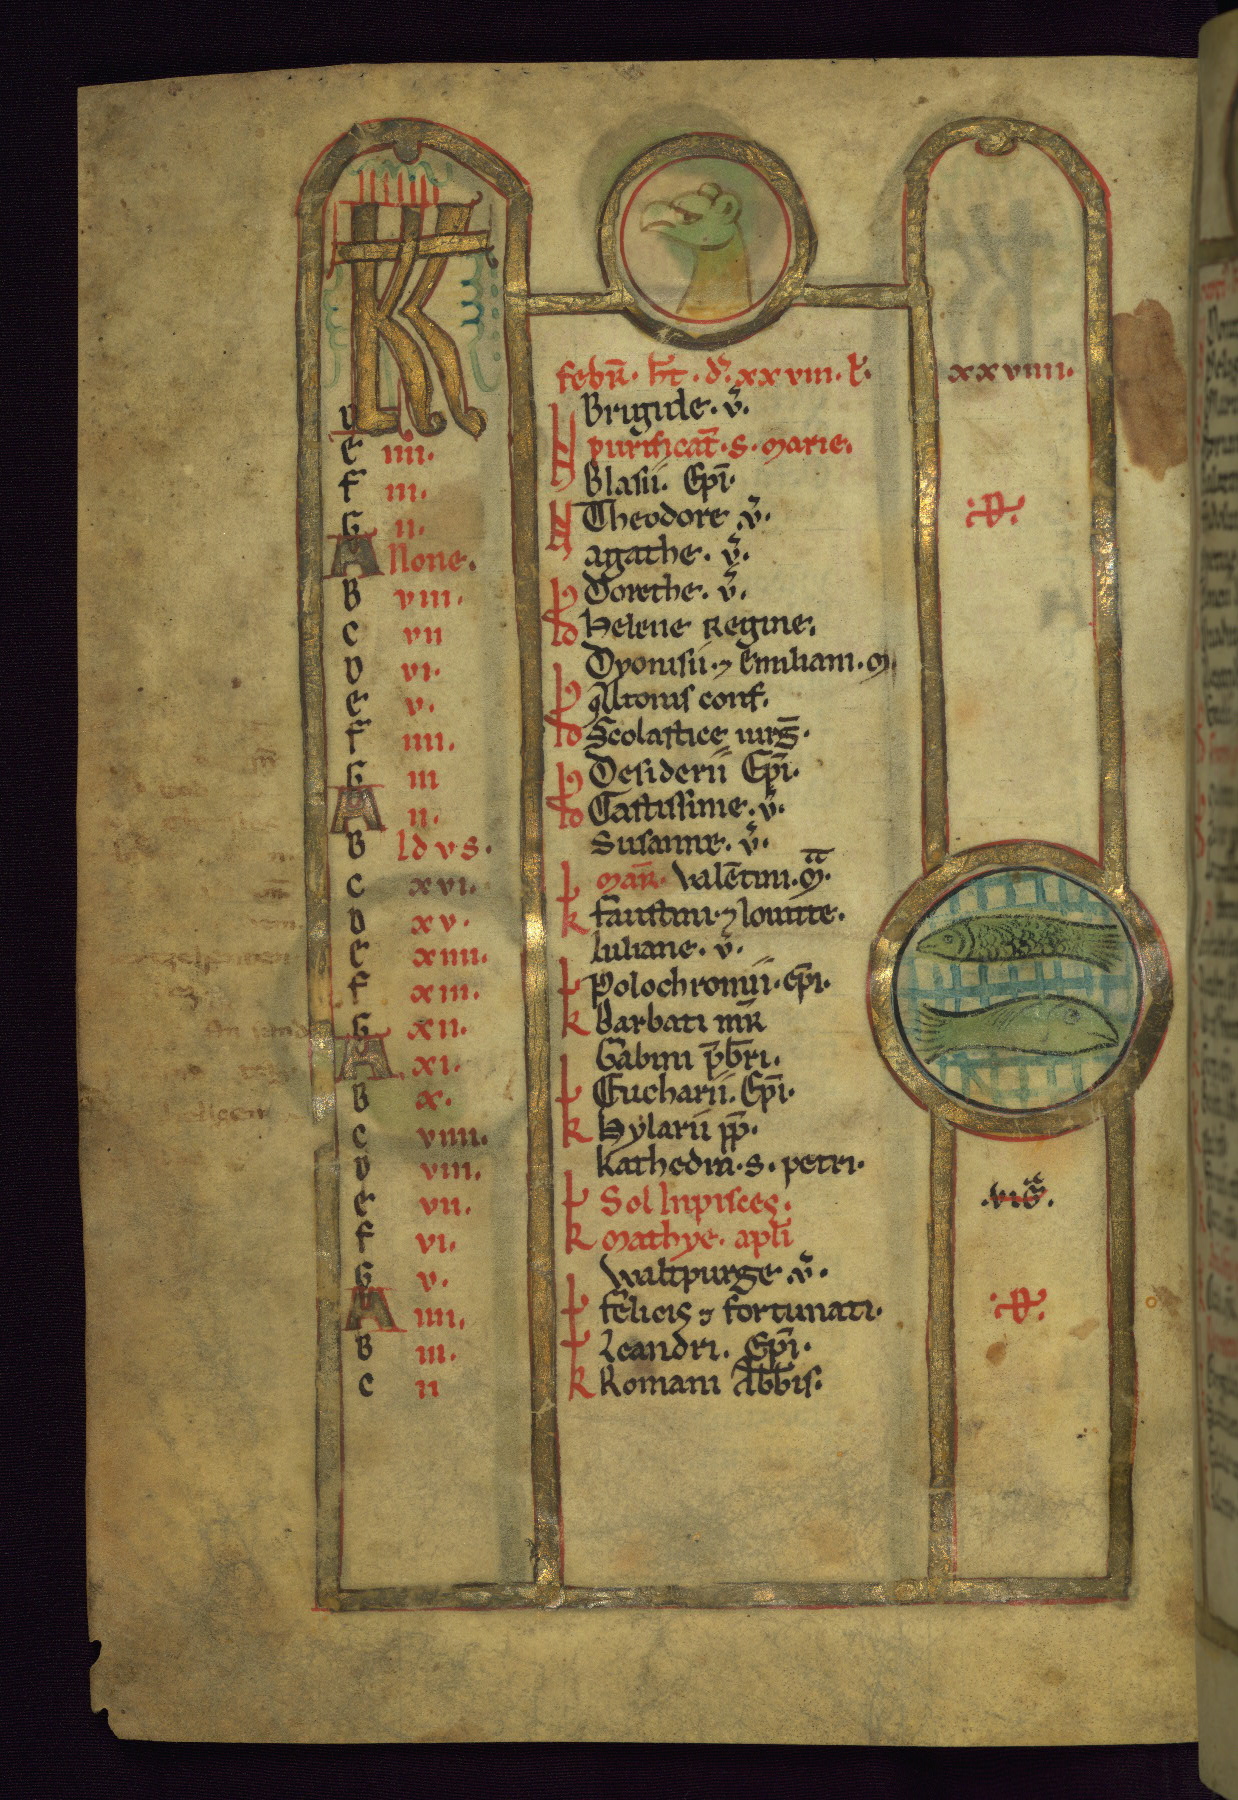 KL
febr̄. h̄t. d̓. xxviii. l̓. xxviiii.
D Brigide. v̓.
E iiii. purificat̄. s. marie.
F iii. Blasii. Ep̄i.
G ii. Theodore v̓.
A None. agathe. v̓.
B viii. Dorethe. v̓.
C vii Helene Regine.
D vi. Dyonisii. ⁊ Emiliani. m
E v. Altonis conf.
F iiii. Scolastice uirḡ.
G iii Desiderii Ep̄i.
A ii. Castissime. v̓.
B Idvs. Susanne. v̓.
C xvi. mar̄. Valētini. m̄
D xv. faustini ⁊ Iouitte.
E xiiii. Iuliane. v̓.
F xiii. Polochronii. ep̄i.
G xii. Barbati mr̄
A xi. Gabini p̄bri.
B x. Eucharii. Ep̄i.
C viiii. Hylarii pp̄.
D viii. kathedra. s. petri.
E vii. Sol In pisces. vig̅.
F vi. mathye. apl̄i
G v. Waltpurge v̓.
A iiii. felicis ⁊ fortunati.
B iii. Leandri. Ep̄i.
C ii Romani Abb̄is.